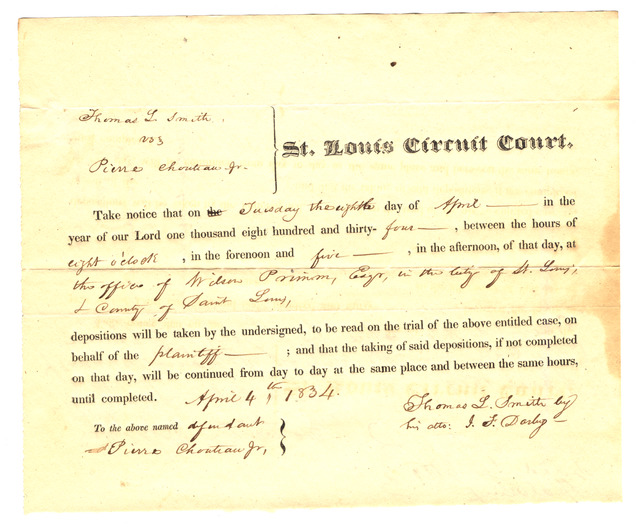 Thomas L. Smith,
vs
Pierre Chouteau Jr.
St. Louis Circuit Court.
Take notice that on the Tuesday the eighth day of April in the
year of our Lord one thousand eight hundred and thirty-four, between the hours of
eight o'clock, in the forenoon and five, in the afternoon, of that day, at
the office of Wilson Primm, Esqr, in the City of St. Louis,
& County of Saint Louis,
depositions will be taken by the undersigned, to be read on the trial of the above entitled case, on
behalf of the plaintiff; and that the taking of said depositions, if not completed
on that day, will be continued from day to day at the same place and between the same hours,
until completed. April 4th 1834.
Thomas L. Smith by
his atto: J. F. Darby
To the above named defendant
Pierre Chouteau Jr,